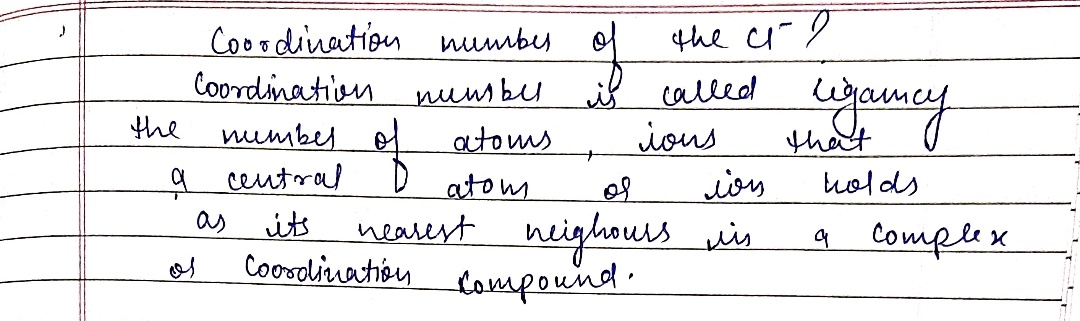 Coordination number of the Cl⁻ ?
Coordination number is called ligancy
the number of atoms , ions that
a central atom or ion holds
as its nearest neighours in a complex
or Coordination Compound.